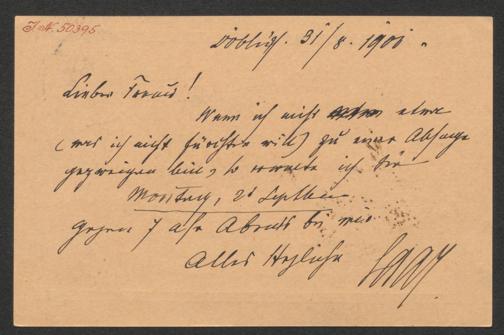 J.N. 50395
Döbling. 31/8. 1901.
Lieber Freund!
Wenn ich nicht etwa
(was ich nicht fürchten will) zu einer Absage
gezwungen bin, so erwarte ich Sie
Montag, 2. September
gegen 7 Uhr Abends bei mir.
Alles Herzliche